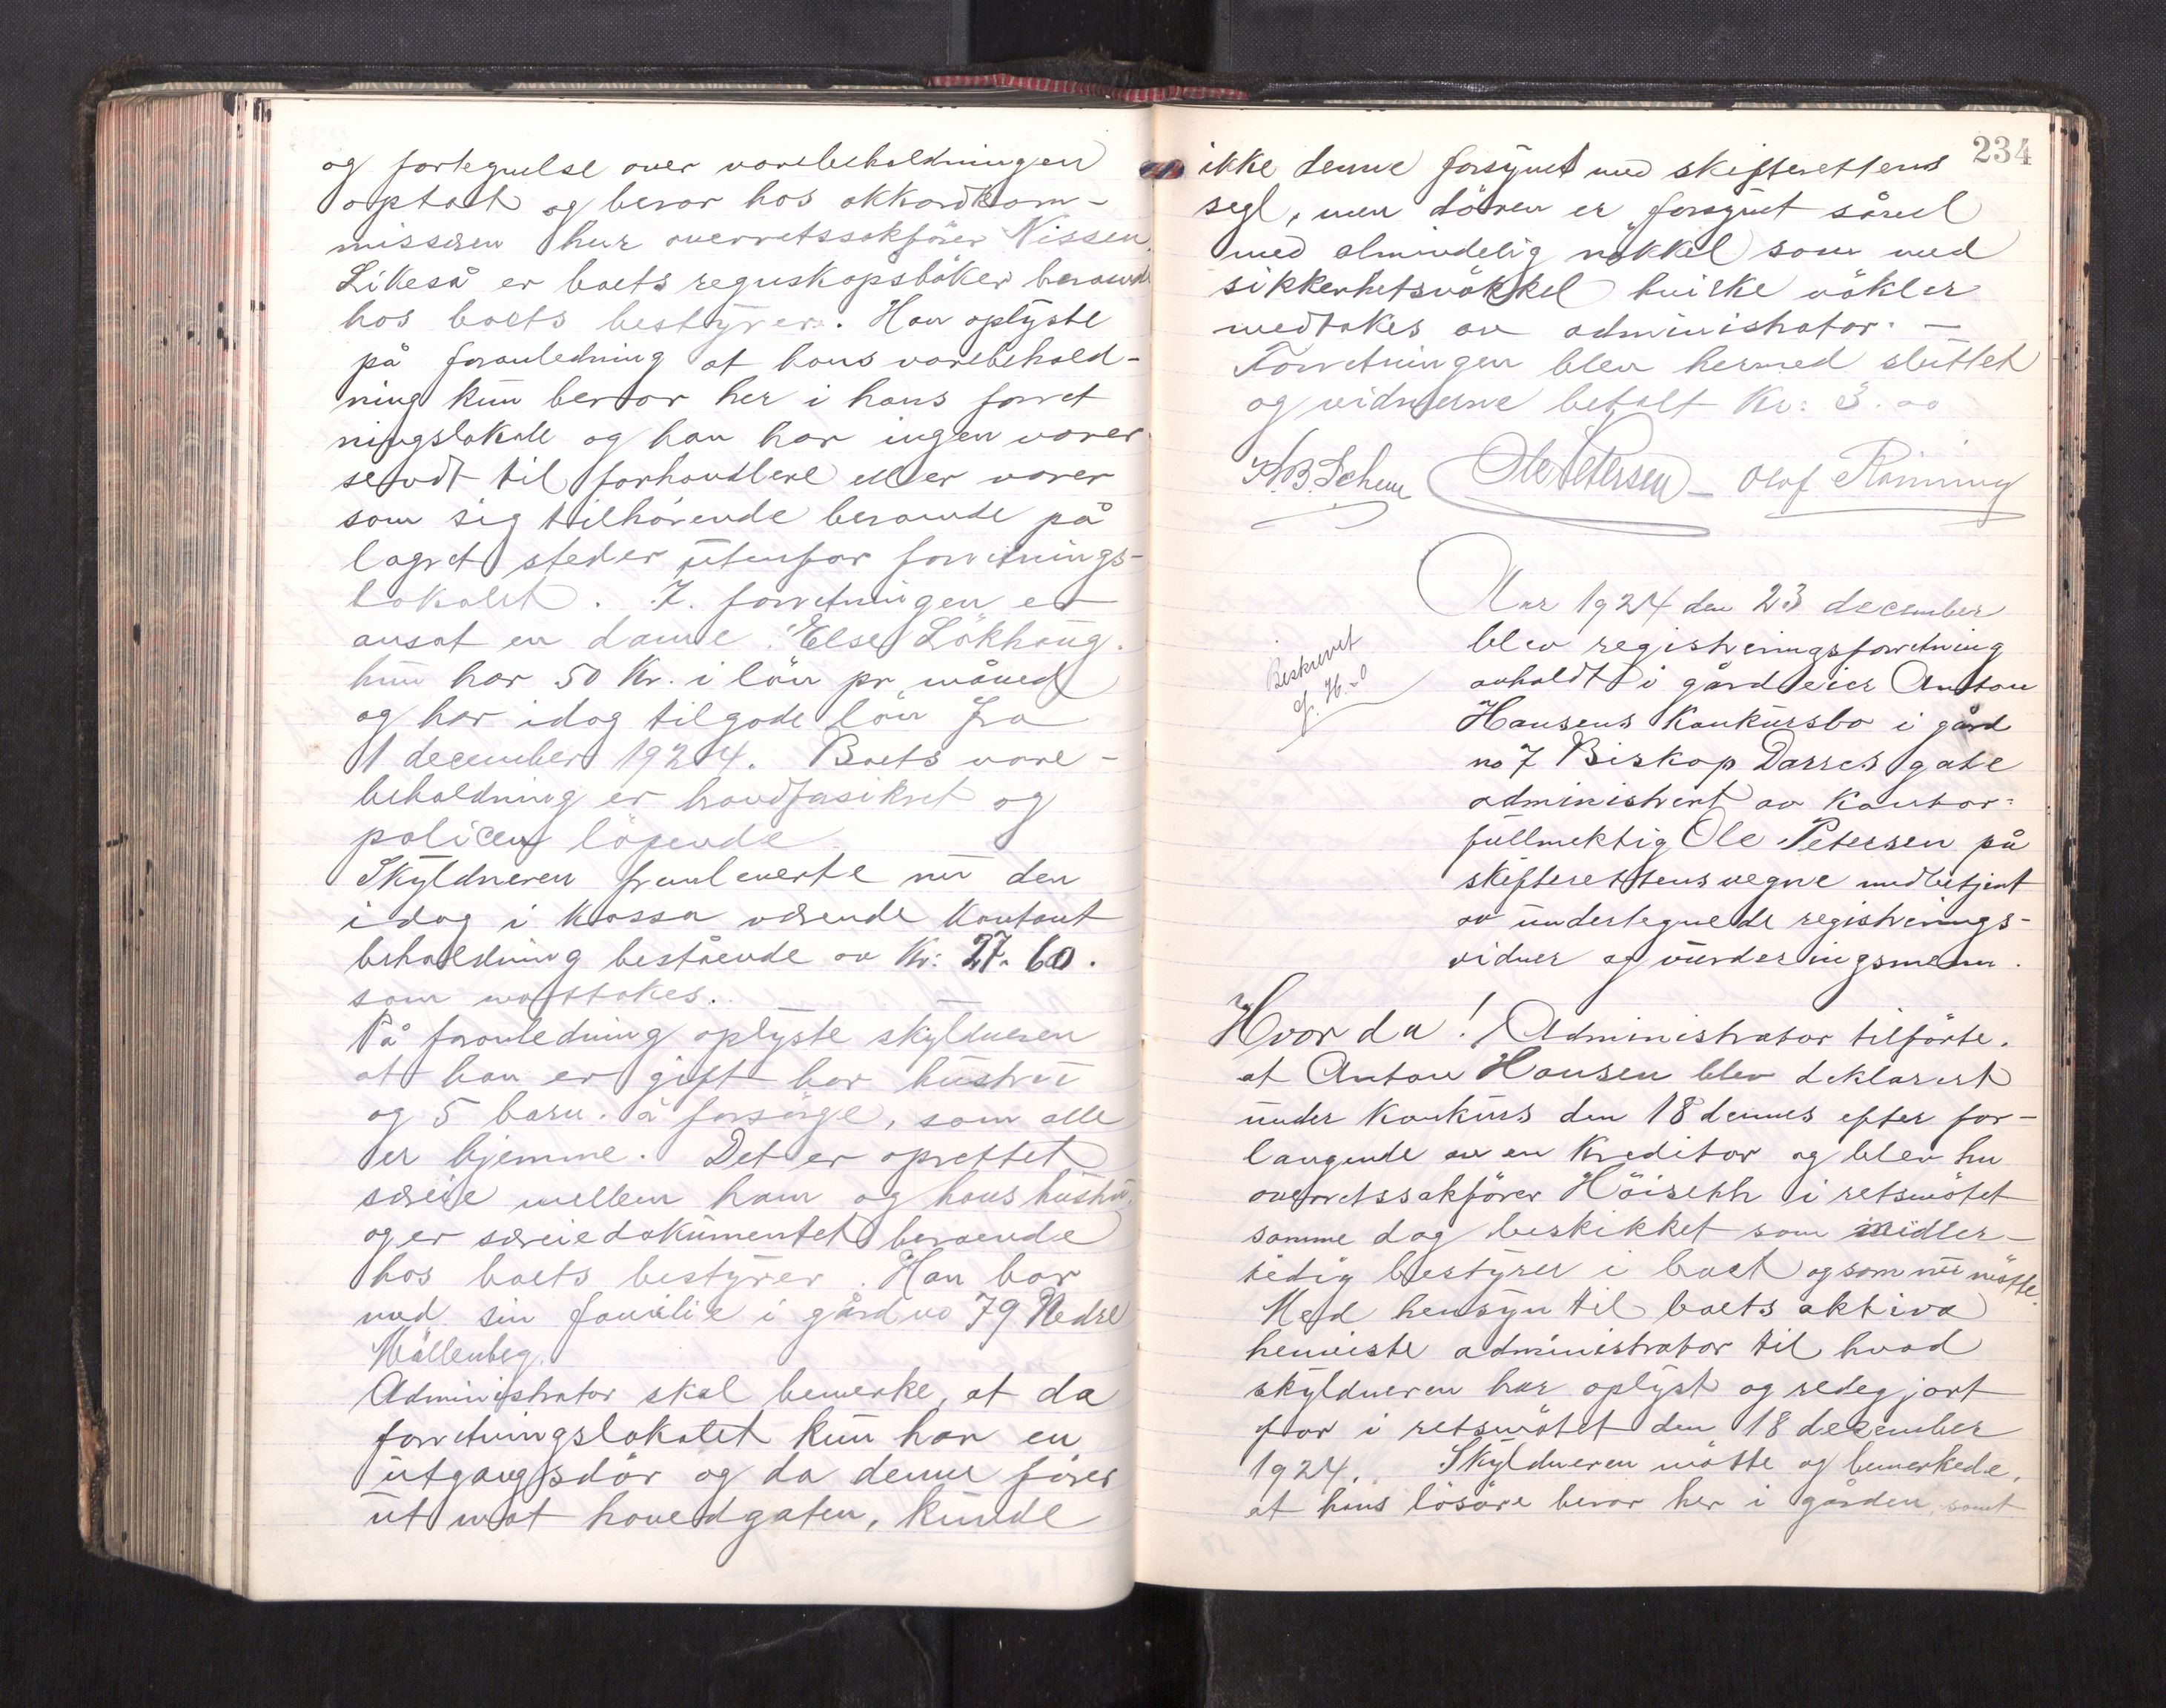 og fortegnelse over varebeholdningen
optat og beror hos akkordkom-
missæren hrr overretssakfører Nissen.
Likeså er boets regnskapsbøker beroende
hos boets bestyrer. Han oplyste
på foranledning at hans varebehold-
ning kun beror her i hans forret
ningslokale og han har ingen varer
sendt til forhandlere eller varer
som sig tilhørende beroende på
lagret steder utenfor forretnings-
lokalet. I forretningen er
ansat en dame Else Løkhaug.
hun har 50 Kr. i løn pr måned
og har idag tilgode løn fra
1 december 1924. Boets vare-
beholdning er brandfasikret og
policen løpende
Skyldneren fremleverte nu den
idag i kassa værende kontant
beholdning bestående av Kr: 27.60.
som mottokes.
På foranledning oplyste skyldneren
at han er gift har hustru
og 5 barn å forsørge, som alle
er hjemme. Det er oprettet
særeie mellem ham og hans hustru,
og er særeiedokumentet beroende
hos boets bestyrer. Han bor
med sin familie i gård no 79 Nedre
Møllenberg.
Administrator skal bemerke, at da
forretningslokalet kun har en
utgangsdør og da denne fører
ut mot hovedgaten, kunde
234
ikke denne forsynet med skifterettens
segl, men døren er forsynet såvel
med almindelig nøkkel som med
sikkerhetsnøkkel hvilke nøkler
medtokes av administrator. —
Forretningen blev hermed sluttet
og vidnerne betalt Kr: 3.00
Ole Petersen — Olaf Rønning
Aar 1924 den 23 december
blev registreringsforretning
avholdt i gårdeier Anton
Hansens konkursbo i gård
no 7 Biskop Darres gate
administrert av kontor-
fullmektig Ole Petersen på
skifterettens vegne medbetjent
av undertegnede registrerings-
vidner og vurderingsmenn.
Beskrevet
Hvor da! Administrator tilførte.
at Anton Hansen blev deklarert
under konkurs den 18 dennes efter for-
langende av en kreditor og blev hrr
overretssakfører Höiseth i retsmøtet
samme dag beskikket som midler-
tidig bestyrer i boet og som nu møtte.
Med hensyn til boets aktiva
henviste administrator til hvad
skyldneren har oplyst og redegjort
for i retsmøtet den 18 december
1924. Skyldneren møtte og bemerkede,
at hans løsøre beror her i gården, samt